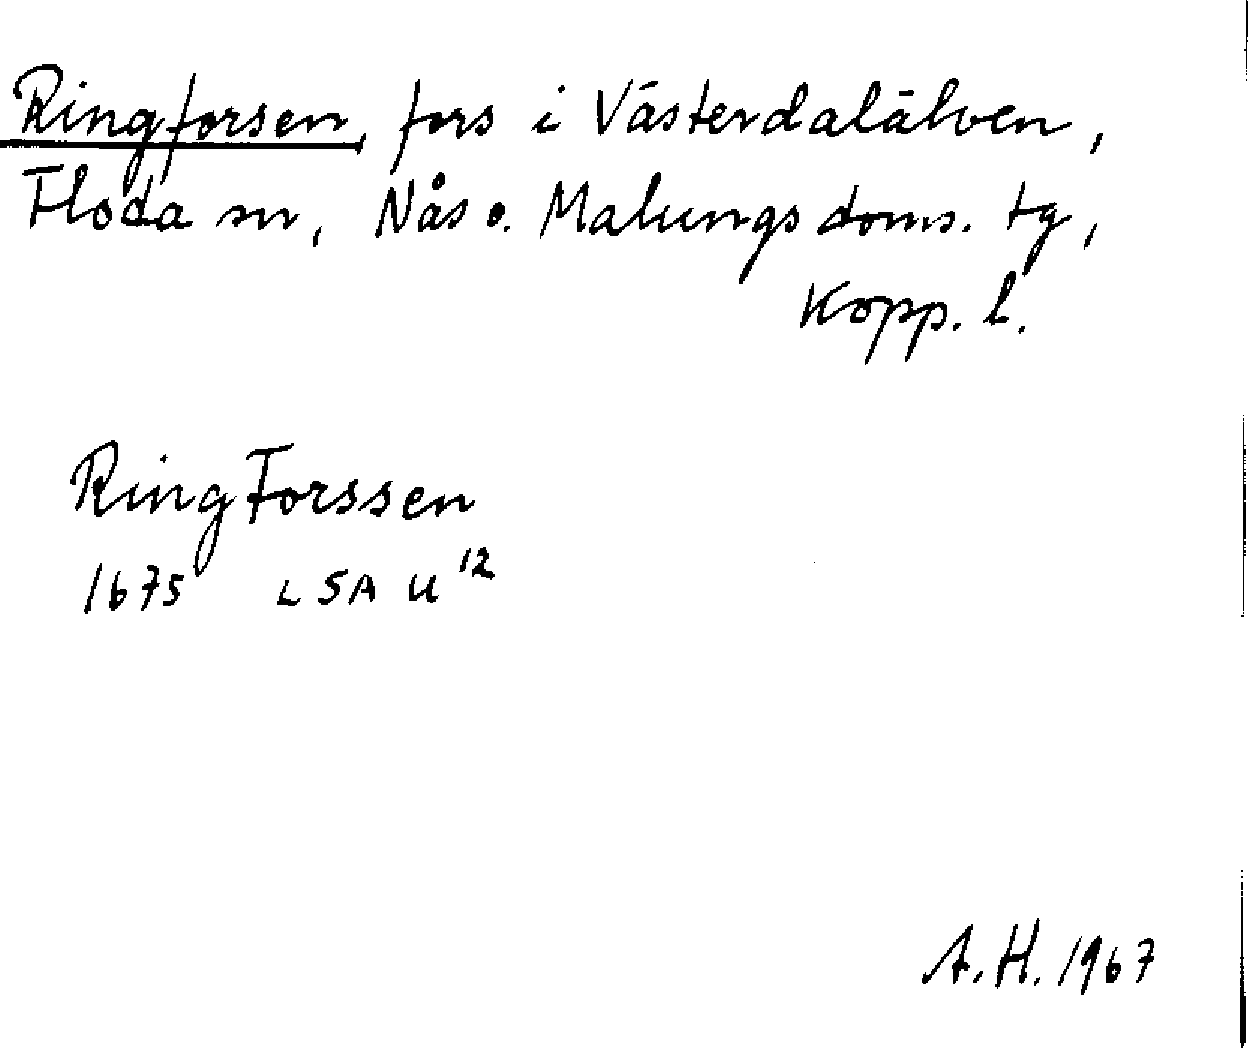 Ringforsen, fors i Västerdalälven,
Floda sn, Nås o. Malungs doms. tg,
Kopp. l.
Ring Forssen
1675 LSA U 12
A.H. 1967